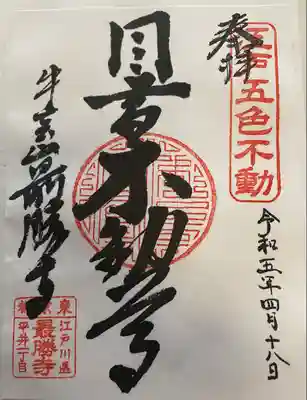 奉拝
江戸五色不動
令和五年四月十八日
目黄不動尊
牛宝山最勝寺
東江戸川區
京最勝寺
都平井一丁目